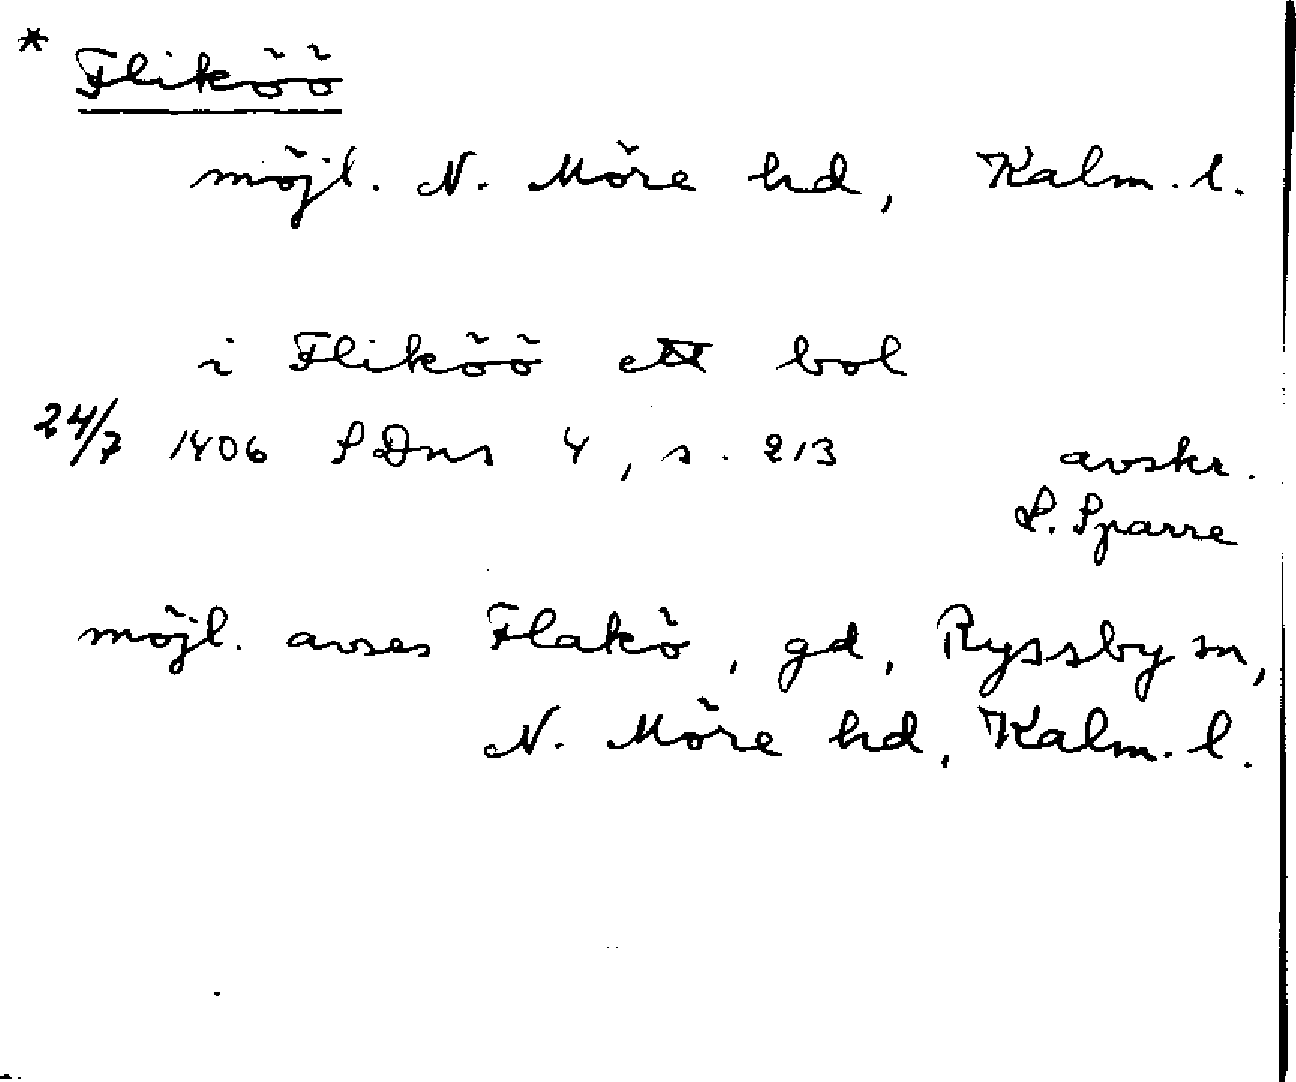 * Fliköö
möjl. N. Möre hd, Kalm. l.
i Fliköö ett bol
24/7 1406 SDns 4, s. 213 avskr.
S. Sparre
möjl. avses Flakö, gd, Ryssby sn,
N. Möre hd, Kalm. l.